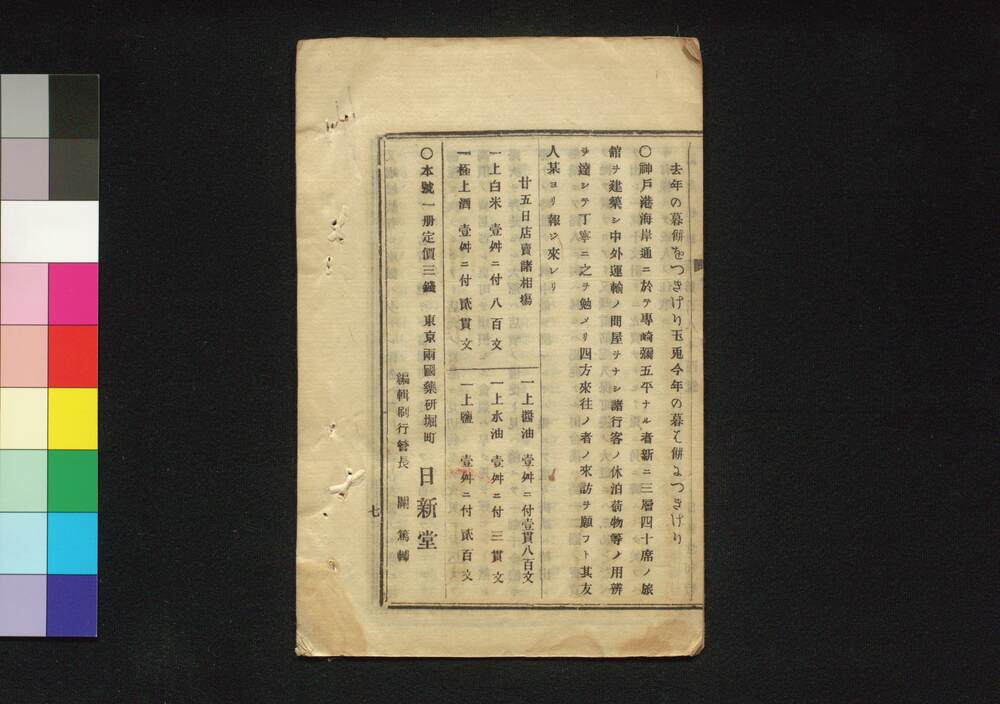 去年の暮餅をつきけり玉兎今年の暮そ餅はつきけり
〇神戸港海岸通ニ於テ專崎彌五平ナル者新ニ三層四十席ノ旅
館ヲ建築シ中外運輸ノ問屋ヲナシ諸行客ノ休泊荷物等ノ用辨
ヲ達シテ丁寧ニ之ヲ勉メリ四方來往ノ者ノ來訪ヲ願フト其友
人某ヨリ報ジ來レリ
廿五日店賣諸相塲
一上白米 壹舛ニ付 八百文
一極上酒 壹舛ニ付 貮貫文
一上醬油 壹舛ニ付壹貫八百文
一上水油 壹舛ニ付 三貫文
一上鹽 壹舛ニ付 貮百文
〇本號一册定價三錢 東京兩國藥研堀町 日新堂
編輯刷行管長 關 篤輔
七